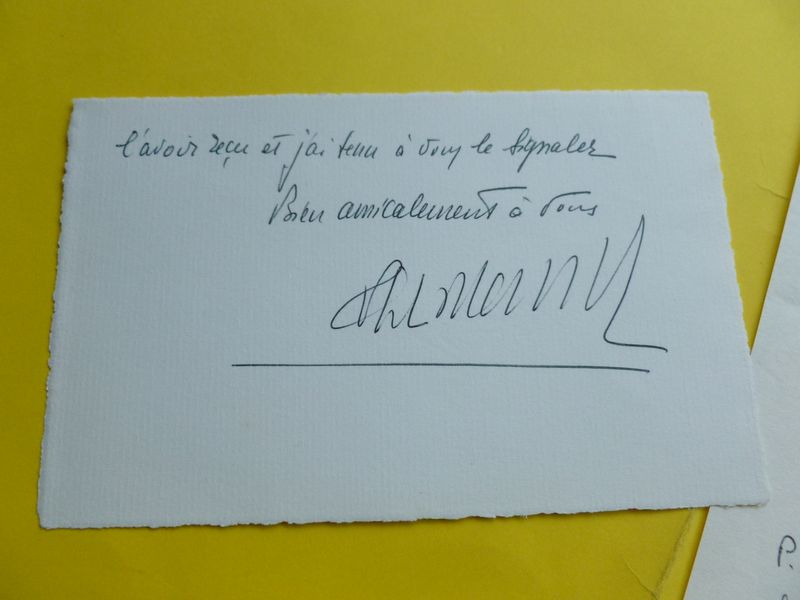 l'avoir reçu et j'ai tenu à vous le signaler
Bien amicalement à vous
P.